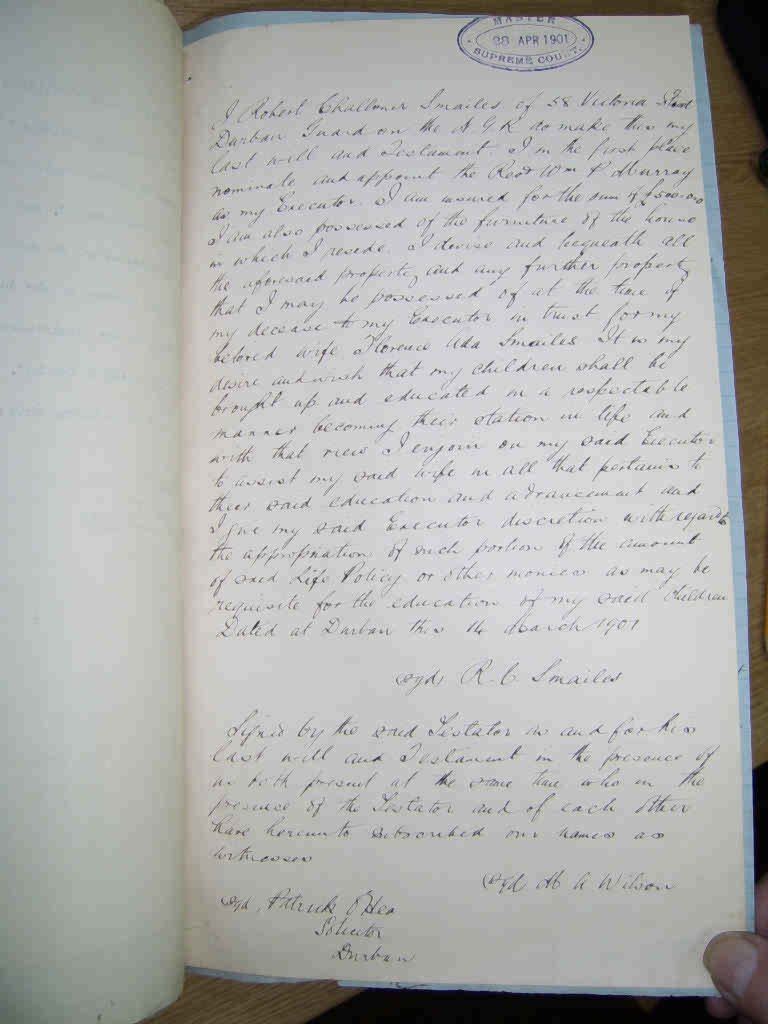 MASTER
28 APR 1901
SUPREME COURT
I Robert Challoner Smailes of 58 Victoria Street
Durban Guard on the N.G.R. do make this my
last will and Testament I in the first place
nominate and appoint the Revd Wm P Murray
as my Executor. I am insured for the sum of £500-0-0
I am also possessed of the furniture of the house
in which I reside. I devise and bequeath all
the aforesaid property and any further property
that I may be possessed of at the time of
my decease to my Executor in trust for my
beloved wife Florence Ada Smailes It is my
desire and wish that my children shall be
brought up and educated in a respectable
manner becoming their station in life and
with that view I enjoin on my said Executor
to assist my said wife in all that pertains to
their said education and advancement and
I give my said Executor discretion with regard to
the appropriation of such portion of the amount
of said Life Policy or other monies as may be
requisite for the education of my said children
Dated at Durban this 14 March 1901
sgd, R. C Smailes
Signed by the said Testator as and for his
last will and Testament in the presence of
us both present at the same time who in the
presence of the Testator and of each other
have hereunto subscribed our names as
witnesses
sgd. A Wilson
sgd, Patrick O'Hea
Solicitor
Durban